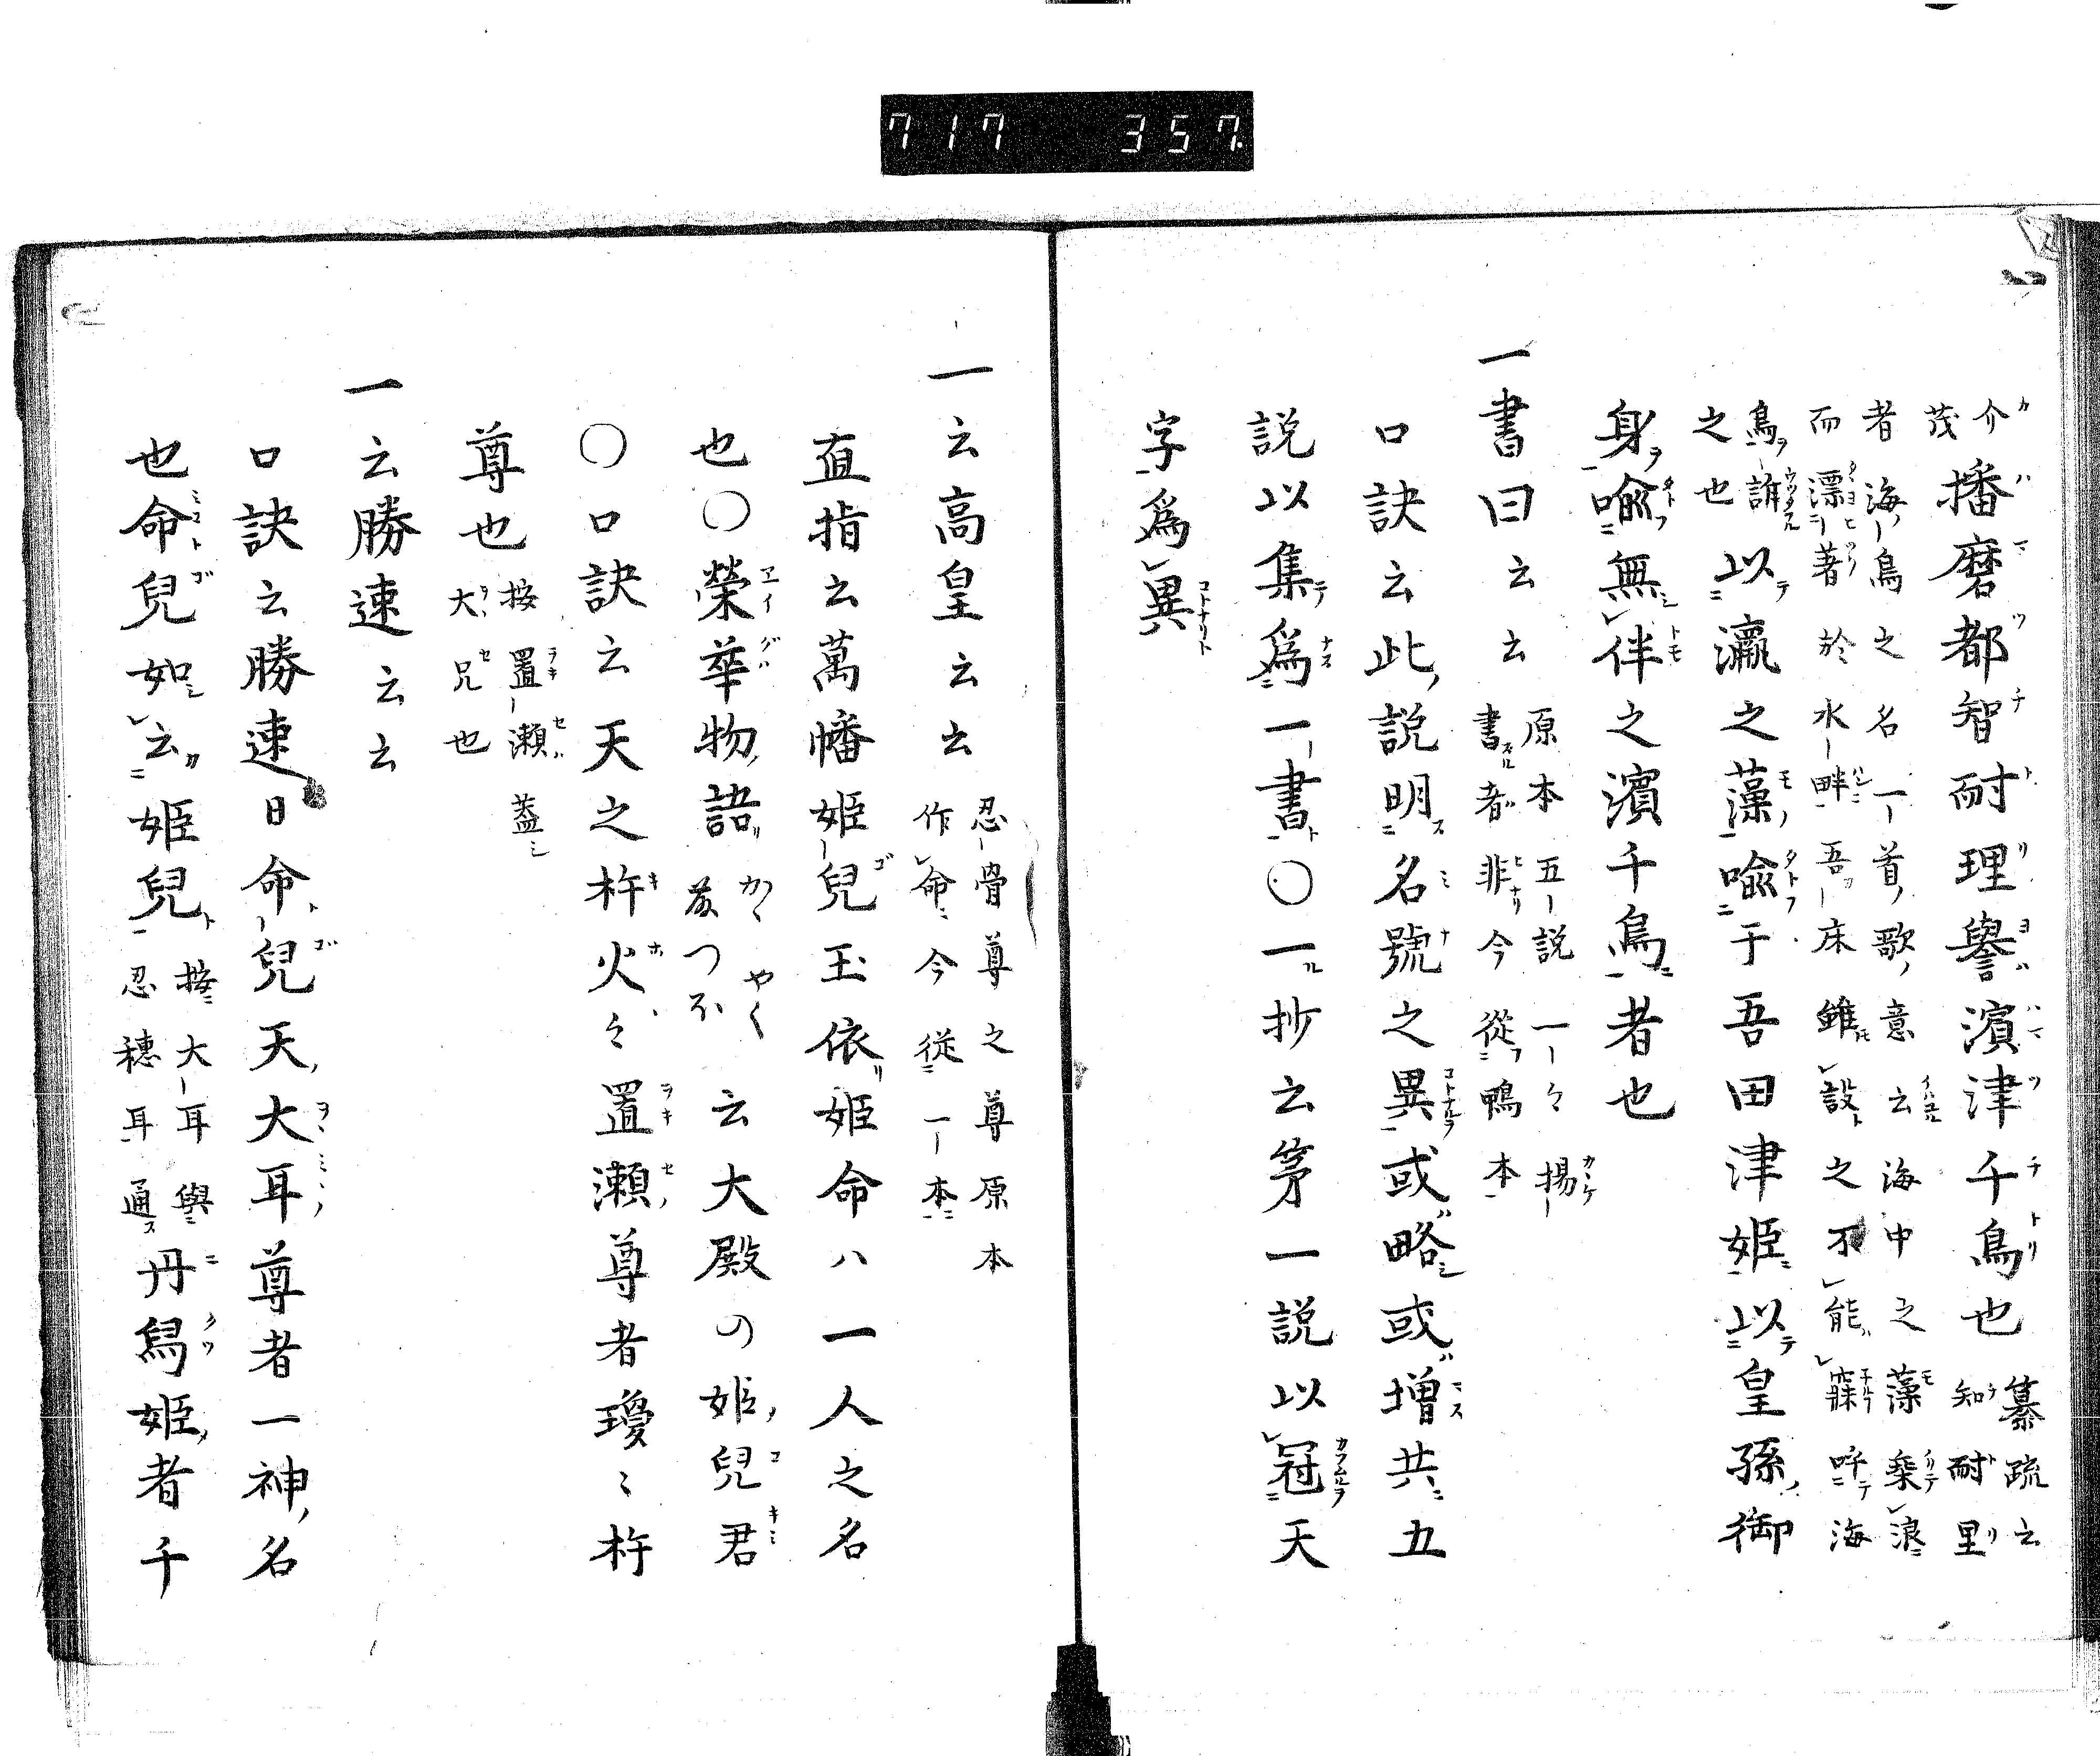 717 357
介茂播磨都智耐理譽濱津千鳥也 纂疏云知耐里
者海鳥之名一首歌意云海中之藻乗浪
而漂著於水畔吾床雖設之不能寐呼海
鳥訴之也以瀛之藻喩于吾田津姫以皇孫御
身喩無伴之濱千鳥者也
一書曰云云 原本五説一々揚書者非今從鴨本
口訣云此説明名號之異或略或増共五
説以集爲一書○一抄云第一説以冠天
字爲異
一云高皇云云 忍骨尊之尊原本作命今從一本
直指云萬幡姫兒玉依姫命ハ一人之名
也○榮華物語 云大殿の姫兒君
○口訣云天之杵火々置瀬尊者瓊々杵
尊也 按置瀬蓋大兄也
一云勝速云云
口訣云勝速日命兒天大耳尊者一神名
也命兒如云姫兒 按大耳與忍穗耳通 丹舄姫者千